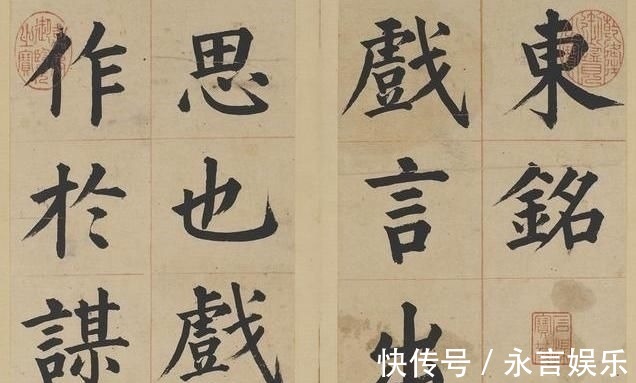 東銘
戲言出
思也戲
作於謀
快传号 / 永言娱乐